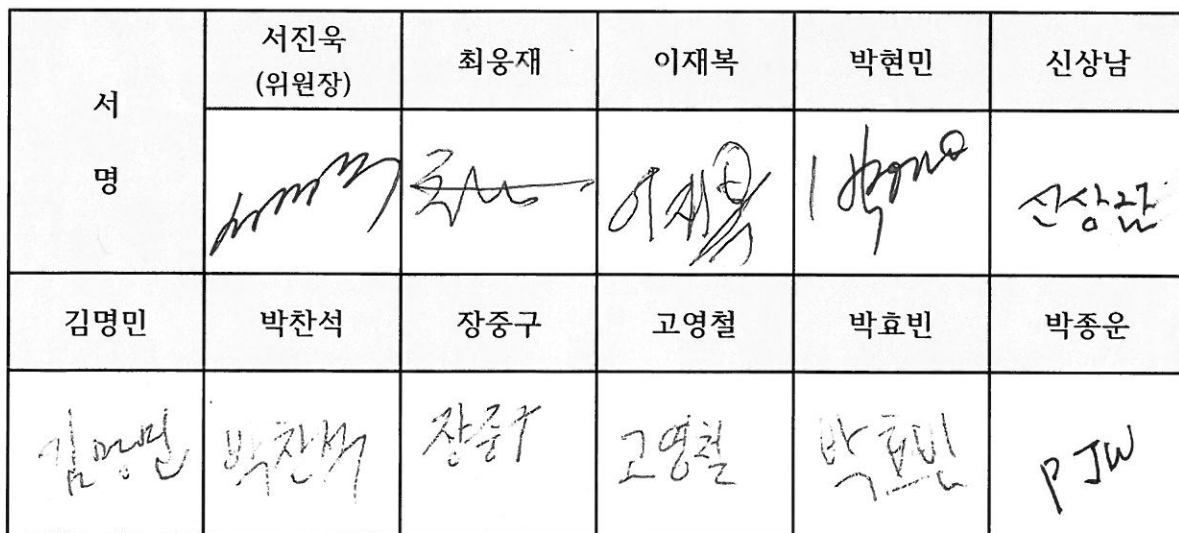 서
명
서진욱
(위원장)
최웅재
이재복
박현민
신상남
이재복
신상남
김명민
박찬석
장중구
고영철
박효빈
박종운
김명민
박찬석
장중구
고영철
박효빈
PJW